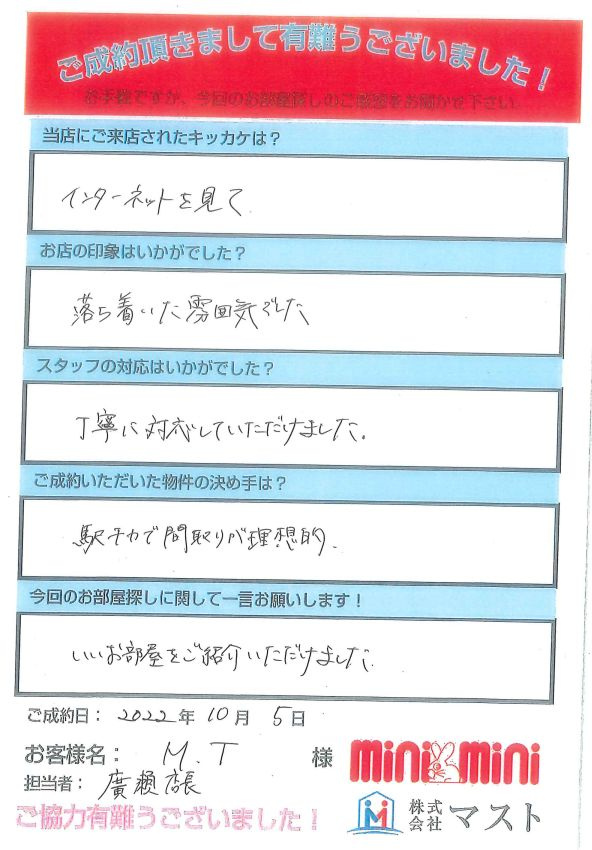 ご成約頂きまして有難うございました！
お手数ですが、今回のお部屋探しのご感想をお聞かせ下さい。
当店にご来店されたキッカケは？
インターネットを見て
お店の印象はいかがでした？
落ち着いた雰囲気でした
スタッフの対応はいかがでした？
丁寧に対応していただけました。
ご成約いただいた物件の決め手は？
駅チカで間取りが理想的.
今回のお部屋探しに関して一言お願いします！
いいお部屋をご紹介いただけました
ご成約日：2022年10月5日
お客様名：M.T様
担当者：廣瀬店長
ご協力有難うございました！
minimini
株式会社マスト